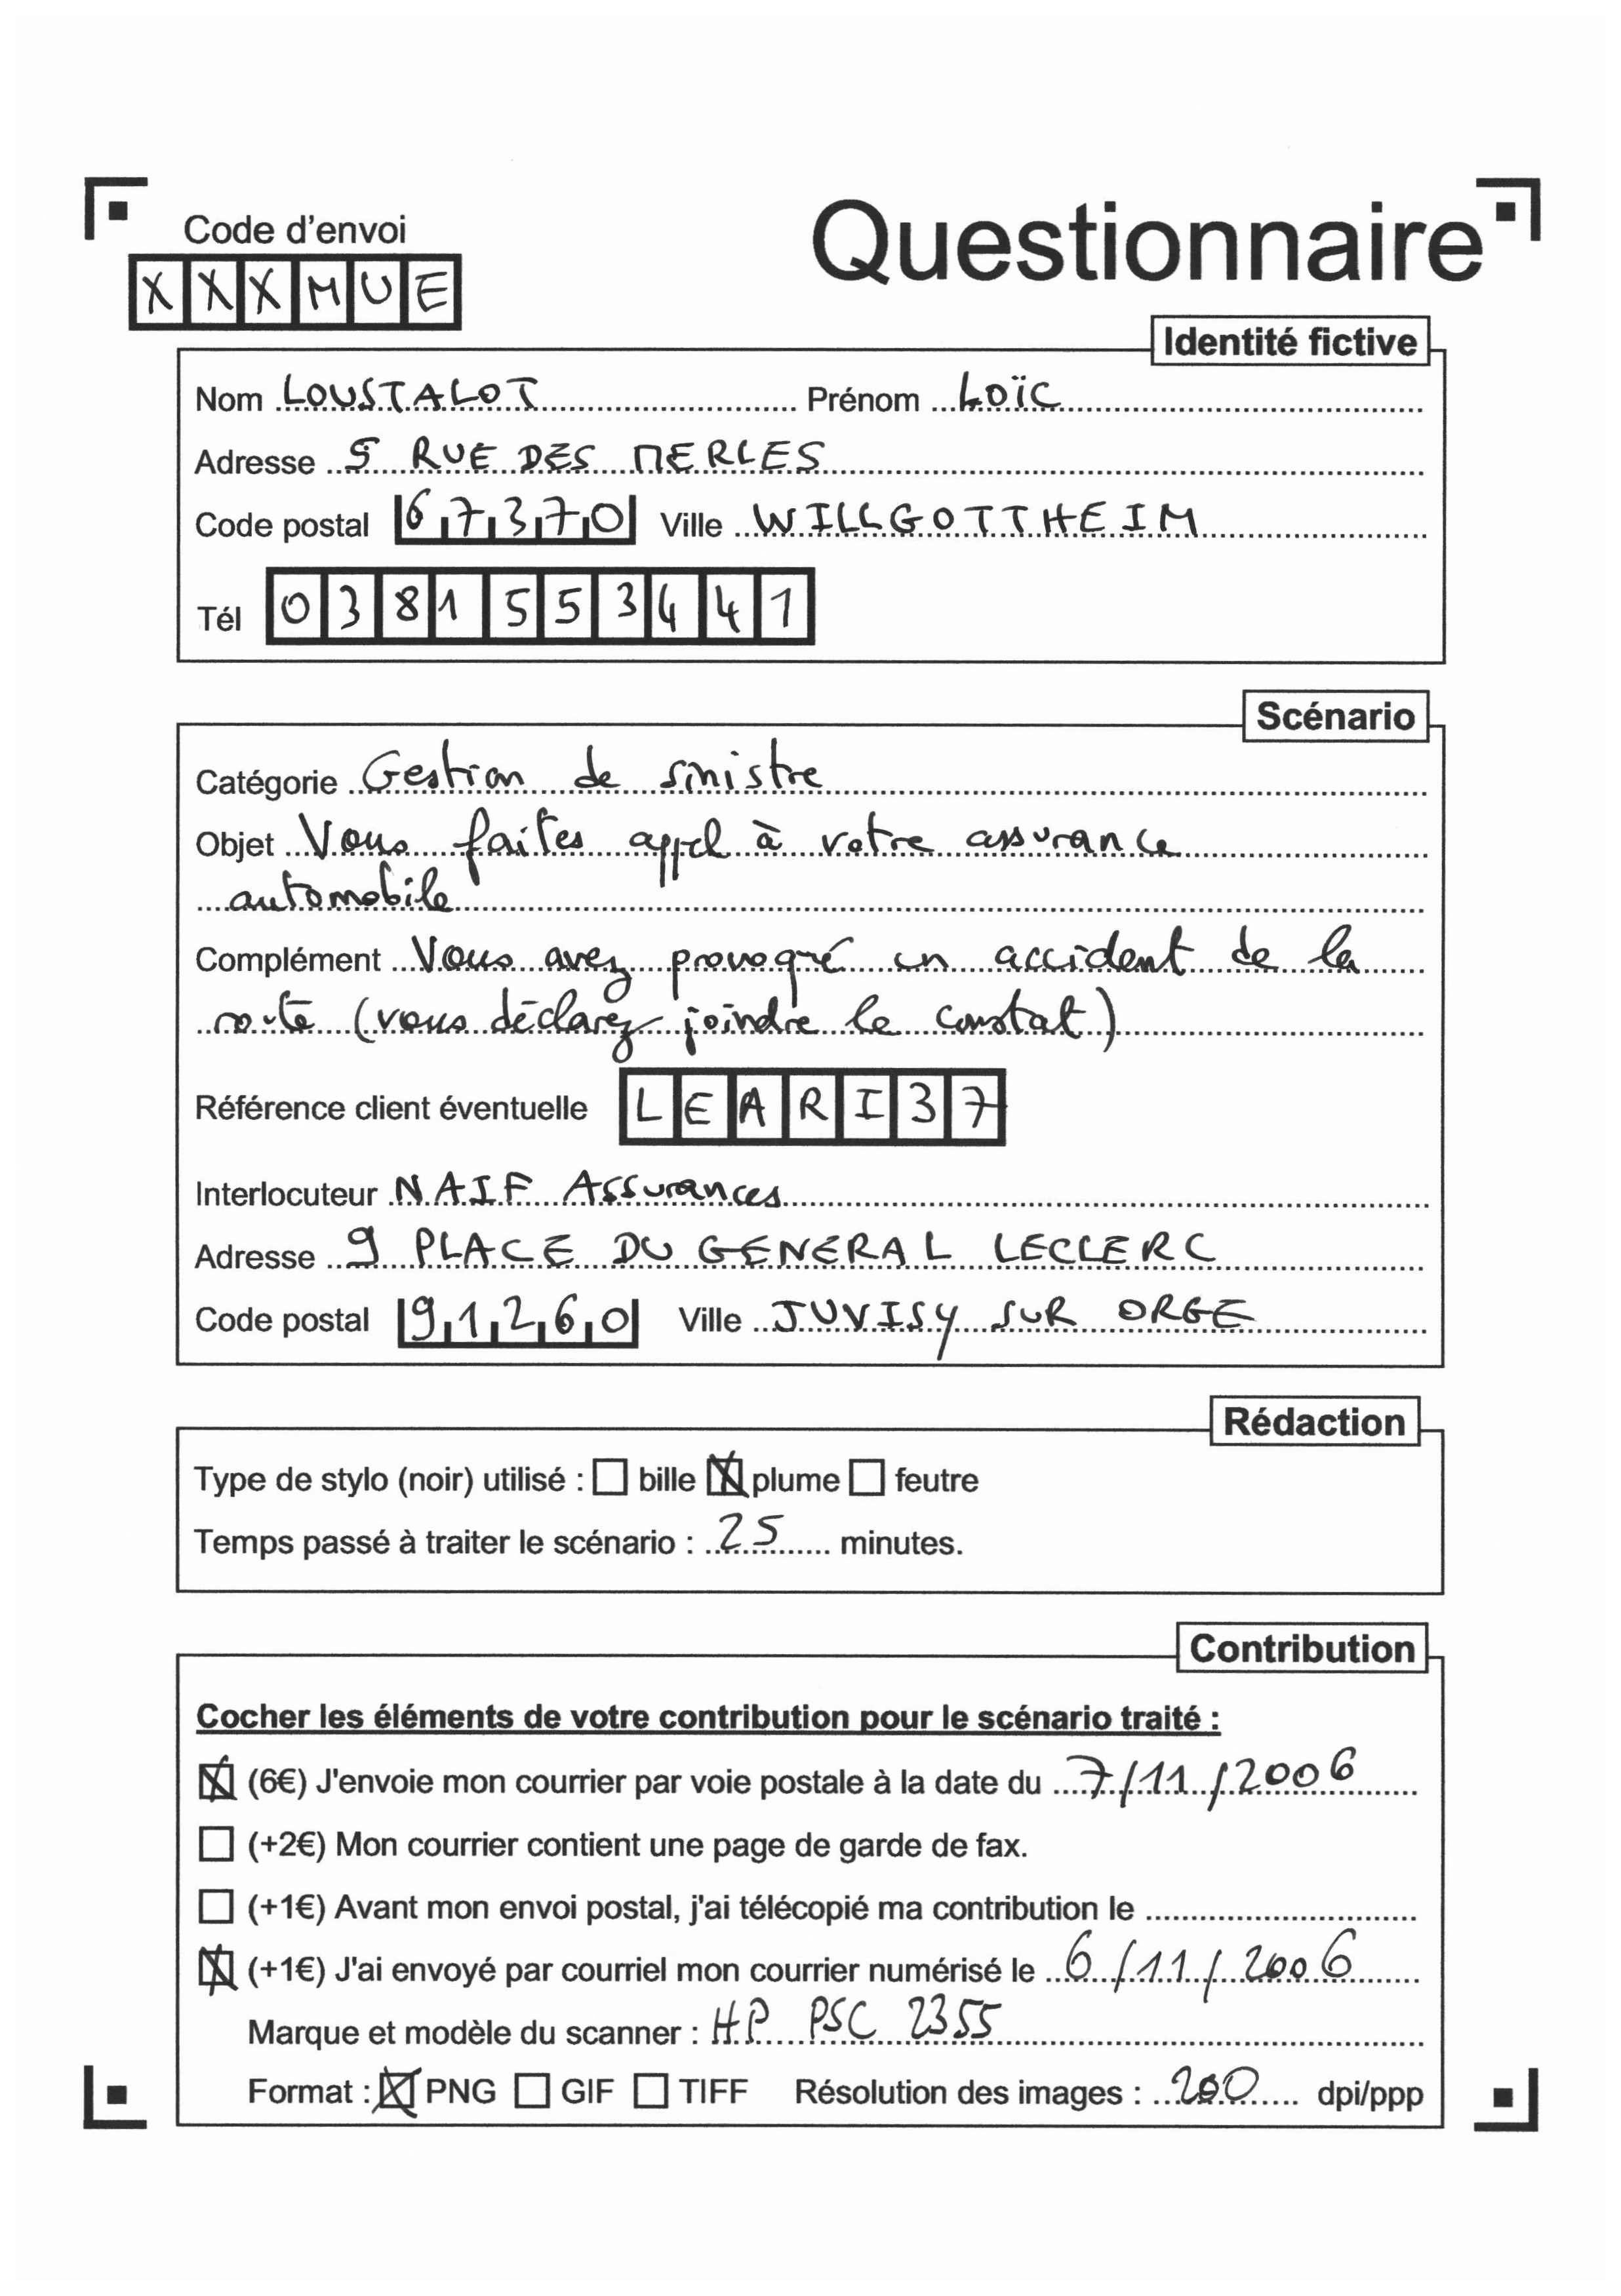 Code d'envoi
Questionnaire
XXXMUE
Identité fictive
Nom LOUSTALOT Prénom LOÏC
Adresse 5 RUE DES MERLES
Code postal 67370 Ville WILLGOTTHEIM
Tél 0381553441
Scénario
Catégorie Gestion de sinistre
Objet Vous faites appel à votre assurance
automobile
Complément Vous avez provoqué un accident de la
route (vous déclarez joindre le constat)
Référence client éventuelle LEARI37
Interlocuteur NAIF Assurances
Adresse 9 PLACE DU GENERAL LECLERC
Code postal 91260 Ville JUVISY SUR ORGE
Rédaction
Type de stylo (noir) utilisé : ☐ bille ☒ plume ☐ feutre
Temps passé à traiter le scénario : 25 minutes.
Contribution
Cocher les éléments de votre contribution pour le scénario traité :
☒ (6€) J'envoie mon courrier par voie postale à la date du 7/11/2006
☐ (+2€) Mon courrier contient une page de garde de fax.
☐ (+1€) Avant mon envoi postal, j'ai télécopié ma contribution le
☒ (+1€) J'ai envoyé par courriel mon courrier numérisé le 6/11/2006
Marque et modèle du scanner : HP PSC 2355
Format : ☒ PNG ☐ GIF ☐ TIFF Résolution des images : 200 dpi/ppp